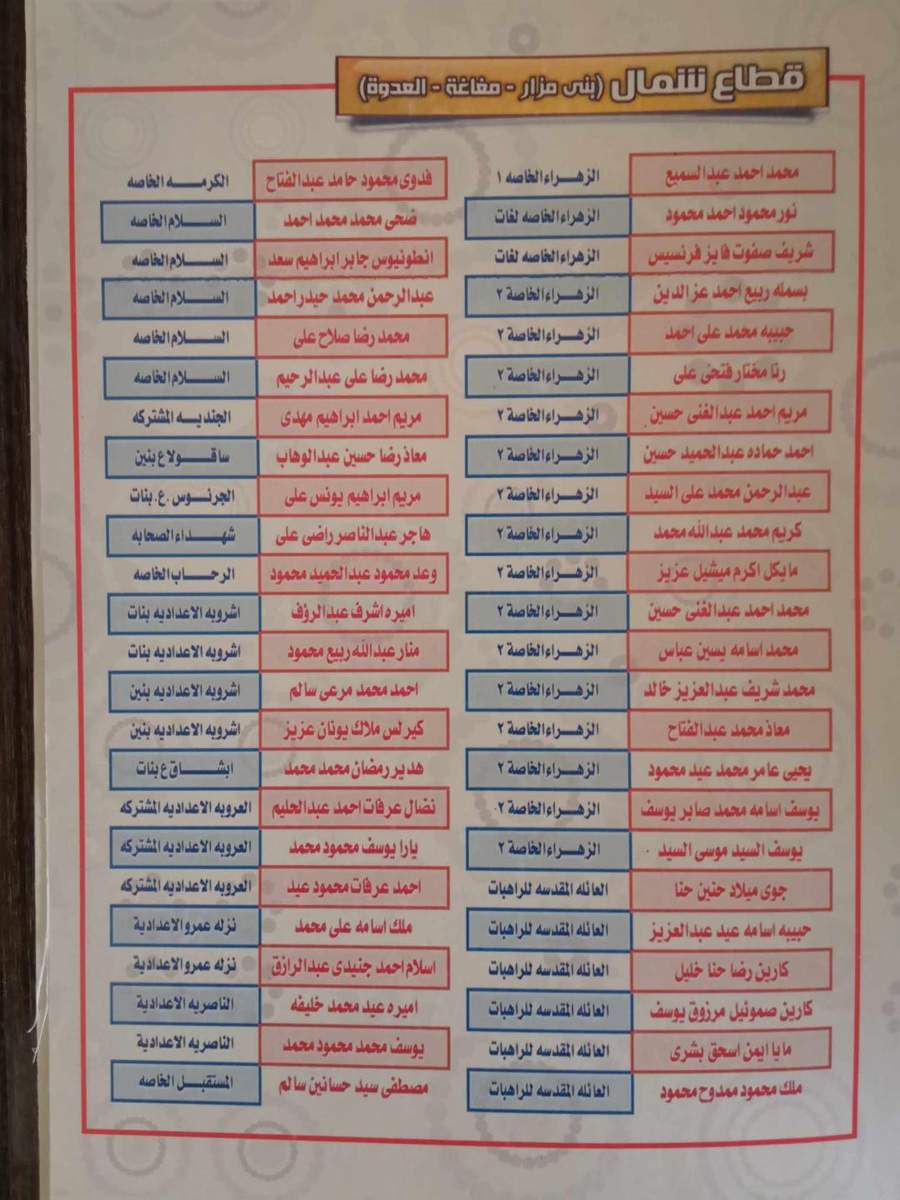 قطاع شمال (بنى مزار - مغاغة - العدوة)
محمد احمد عبدالسميع الزهراء الخاصه ١
نور محمود احمد محمود الزهراء الخاصه لغات
شريف صفوت فايز فرنسيس الزهراء الخاصه لغات
بسمله ربيع احمد عز الدين الزهراء الخاصة ٢
حبيبه محمد على احمد الزهراء الخاصة ٢
رنا مختار فتحى على الزهراء الخاصة ٢
مريم احمد عبدالغنى حسين الزهراء الخاصة ٢
احمد حماده عبدالحميد حسين الزهراء الخاصة ٢
عبدالرحمن محمد على السيد الزهراء الخاصة ٢
كريم محمد عبدالله محمد الزهراء الخاصة ٢
مايكل اكرم ميشيل عزيز الزهراء الخاصة ٢
محمد احمد عبدالغنى حسين الزهراء الخاصة ٢
محمد اسامه يسين عباس الزهراء الخاصة ٢
محمد شريف عبدالعزيز خالد الزهراء الخاصة ٢
معاذ محمد عبدالفتاح الزهراء الخاصة ٢
يحيى عامر محمد عيد محمود الزهراء الخاصة ٢
يوسف اسامه محمد صابر يوسف الزهراء الخاصة ٢
يوسف السيد موسى السيد الزهراء الخاصة ٢
جوى ميلاد حنين حنا العائله المقدسه للراهبات
حبيبه اسامه عيد عبدالعزيز العائله المقدسه للراهبات
كارين رضا حنا خليل العائله المقدسه للراهبات
كارين صموئيل مرزوق يوسف العائله المقدسه للراهبات
مايا ايمن اسحق بشرى العائله المقدسه للراهبات
ملك محمود ممدوح محمود العائله المقدسه للراهبات
فدوى محمود حامد عبدالفتاح الكرمه الخاصه
ضحى محمد محمد احمد السلام الخاصه
انطونيوس جابر ابراهيم سعد السلام الخاصه
عبدالرحمن محمد حيدر احمد السلام الخاصه
محمد رضا صلاح على السلام الخاصه
محمد رضا على عبدالرحيم السلام الخاصه
مريم احمد ابراهيم مهدى الجنديه المشتركه
معاذ رضا حسين عبدالوهاب ساقولا ع بنين
مريم ابراهيم يونس على الجرنوس .ع. بنات
هاجر عبدالناصر راضى على شهداء الصحابه
وعد محمود عبدالحميد محمود الرحاب الخاصه
اميره اشرف عبدالرؤف اشروبه الاعداديه بنات
منار عبدالله ربيع محمود اشروبه الاعداديه بنات
احمد محمد مرعى سالم اشروبه الاعداديه بنين
كيرلس ملاك يونان عزيز اشروبه الاعداديه بنين
هدير رمضان محمد محمد ابشاق ع بنات
نضال عرفات احمد عبدالحليم العروبه الاعداديه المشتركه
يارا يوسف محمود محمد العروبه الاعداديه المشتركه
احمد عرفات محمود عيد العروبه الاعداديه المشتركه
ملك اسامه على محمد نزله عمرو الاعدادية
اسلام احمد جنيدى عبدالرازق نزله عمرو الاعدادية
اميره عيد محمد خليفه الناصريه الاعدادية
يوسف محمد محمود محمد الناصريه الاعدادية
مصطفى سيد حسانين سالم المستقبل الخاصه